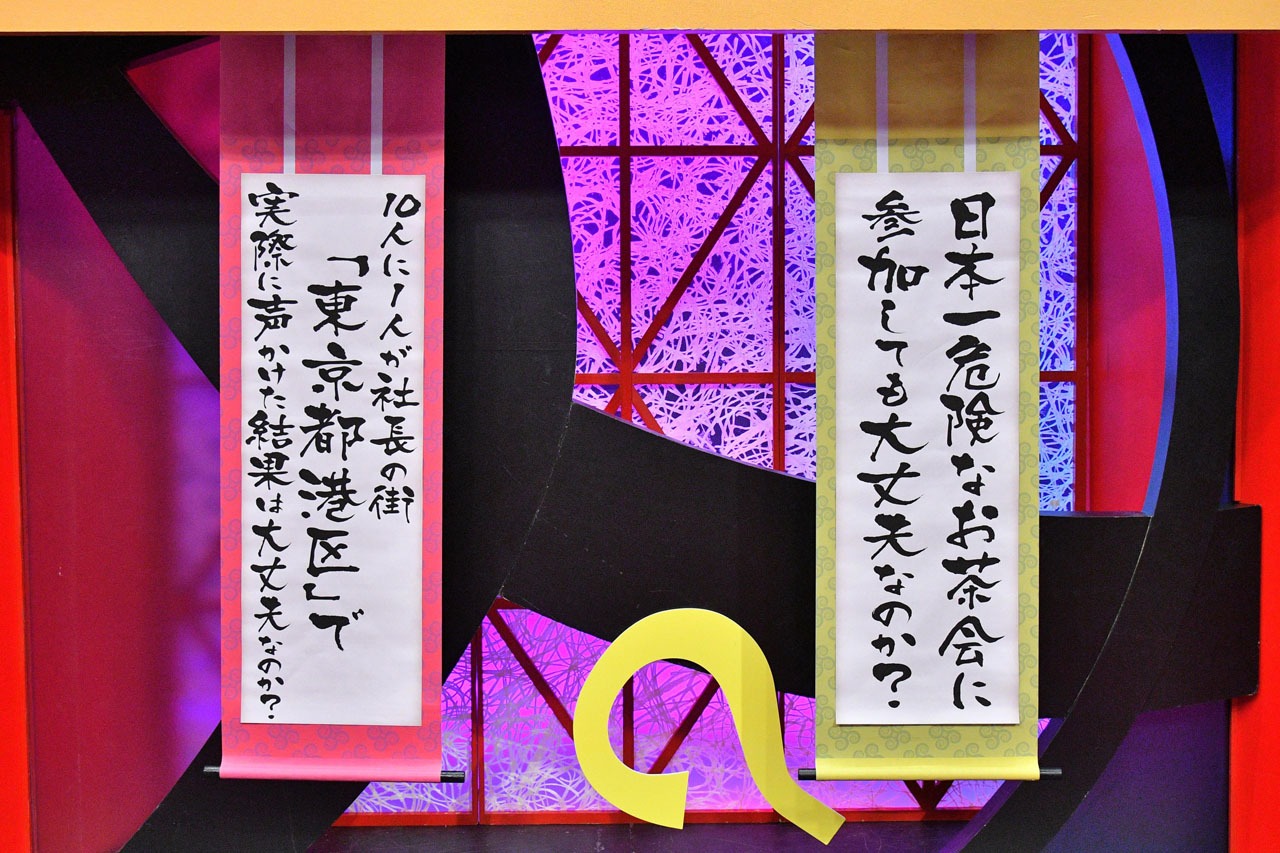 日本一危険なお茶会に
参加しても大丈夫なのか?
10人に1人が社長の街
「東京都港区」で
実際に声かけた結果は大丈夫なのか?